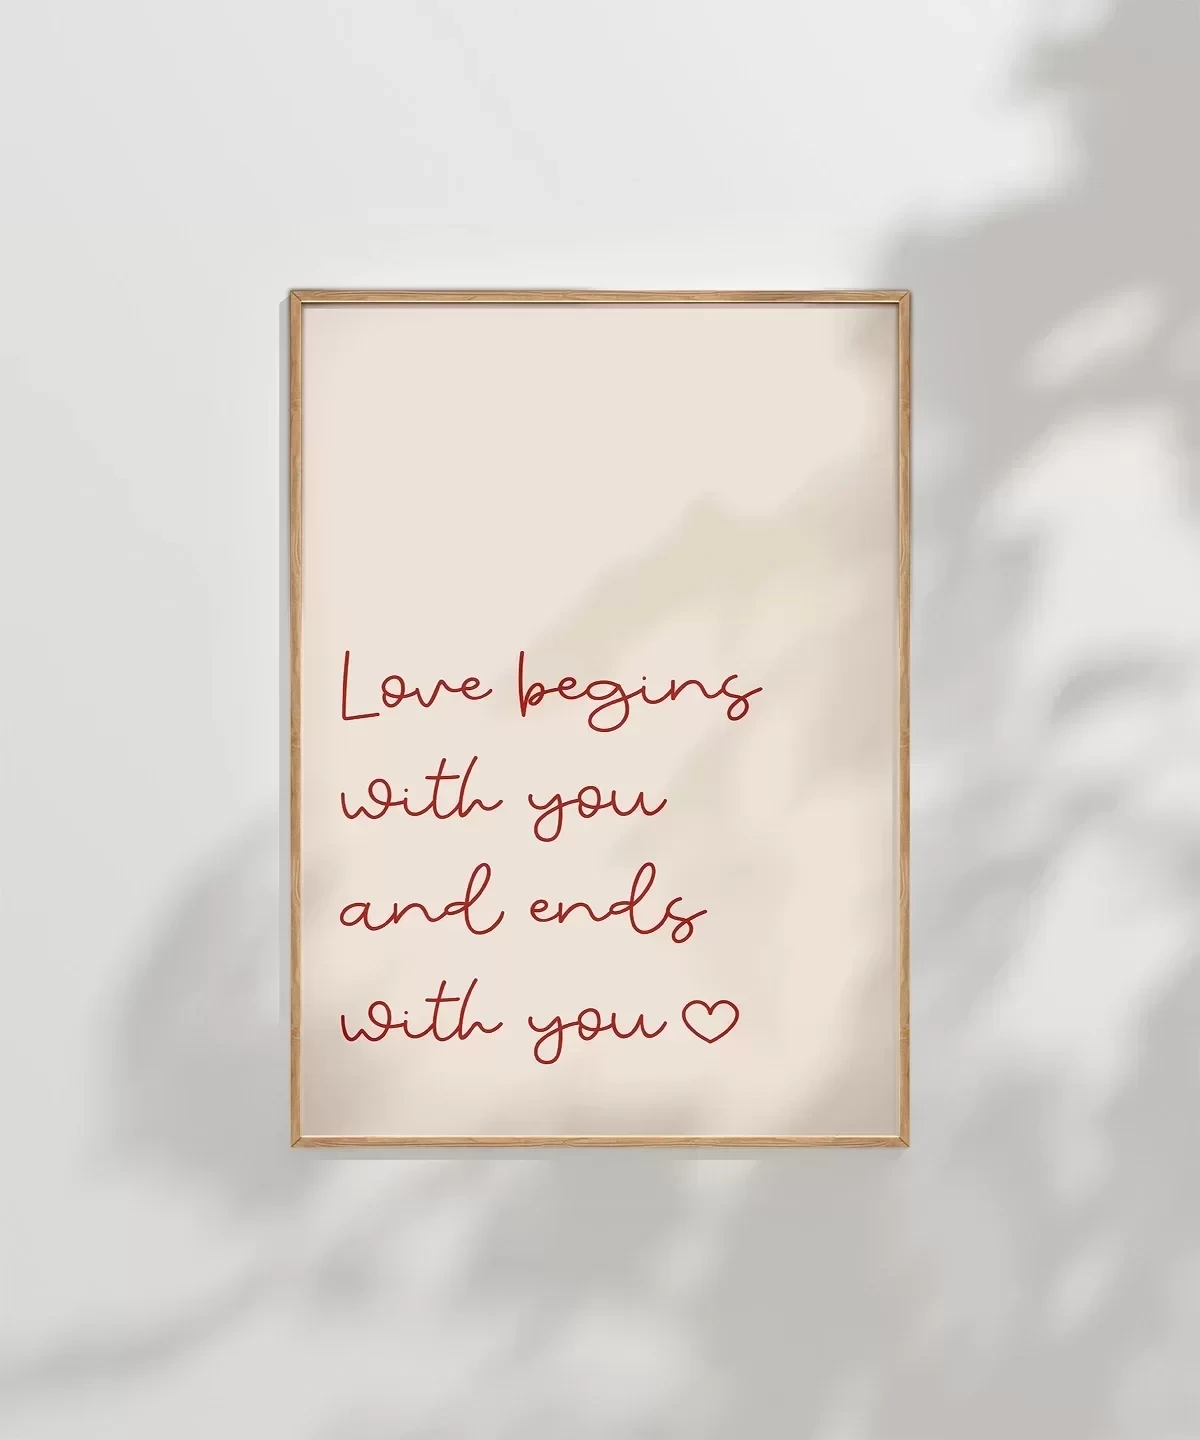 Love begins
with you
and ends
with you♡